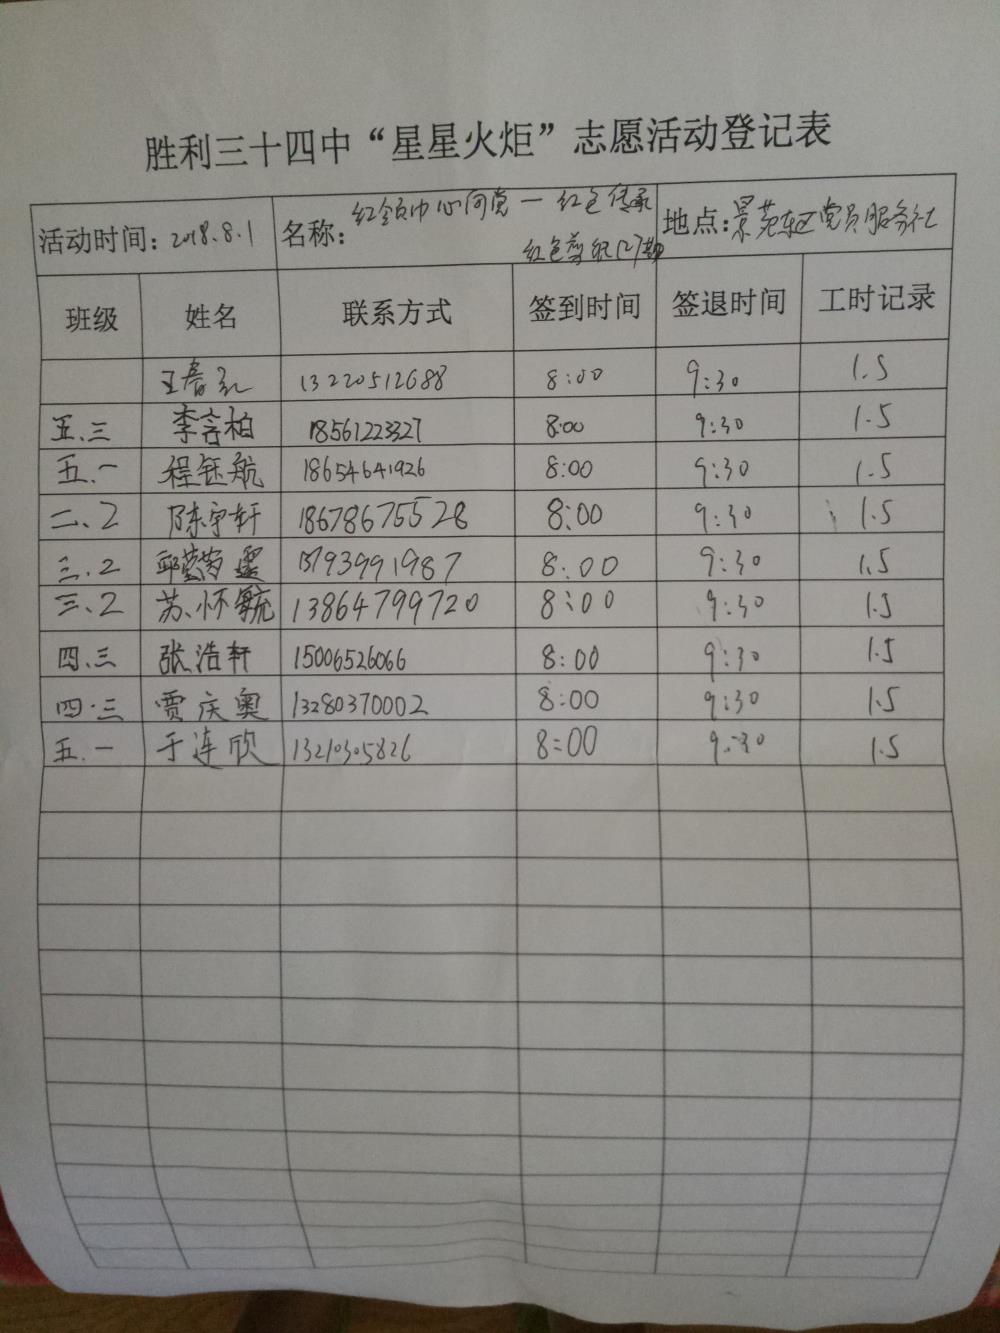 胜利三十四中“星星火炬”志愿活动登记表
活动时间：2018.8.1 名称：红领巾心向党一红色传承 红色剪纸(2)期 地点：景苑东区党员服务社
班级 姓名 联系方式 签到时间 签退时间 工时记录
王春 13220512688 8:00 9:30 1.5
五.三 李言柏 18561223327 8:00 9:30 1.5
五.一 程钰航 18654641926 8:00 9:30 1.5
二、2 陈宇轩 18678675528 8:00 9:30 1.5
三.2 邱 15793991987 8:00 9:30 1.5
三.2 苏怀毓 13864799720 8:00 9:30 1.5
四.三 张浩轩 15006526066 8:00 9:30 1.5
四.三 贾庆奥 13280370002 8:00 9:30 1.5
五.一 于连欣 13210305826 8:00 9:30 1.5